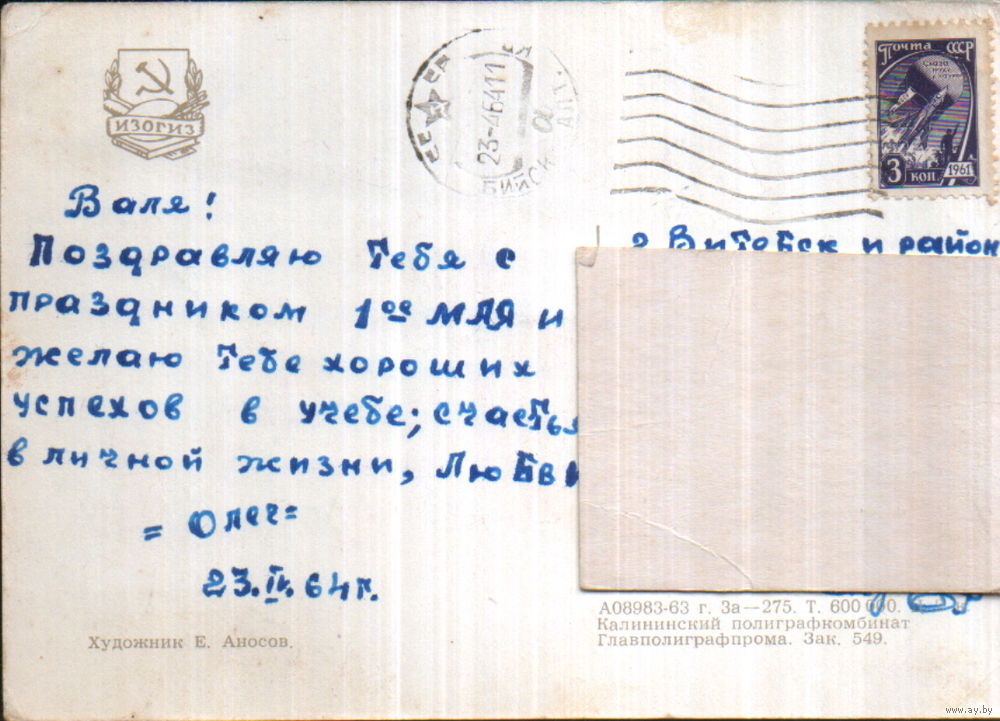 ИЗОГИЗ
23-4 64 11
БИЙСК
Почта СССР
Слава
3 коп 1961
Валя!
Поздравляю Тебя с
праздником 1ое МАЯ и
желаю Тебе хороших
успехов в учебе; счастья
в личной жизни, Любви
= Олег =
23.IV.64г.
Художник Е. Аносов.
г Витебск и район
А08983-63 г. За—275. Т. 600 000.
Калининский полиграфкомбинат
Главполиграфпрома. Зак. 549.
www.ay.by